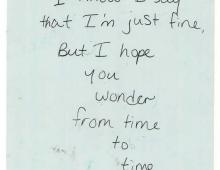 I know I say
that I'm just fine,
But I hope
you
wonder
from time
to
time